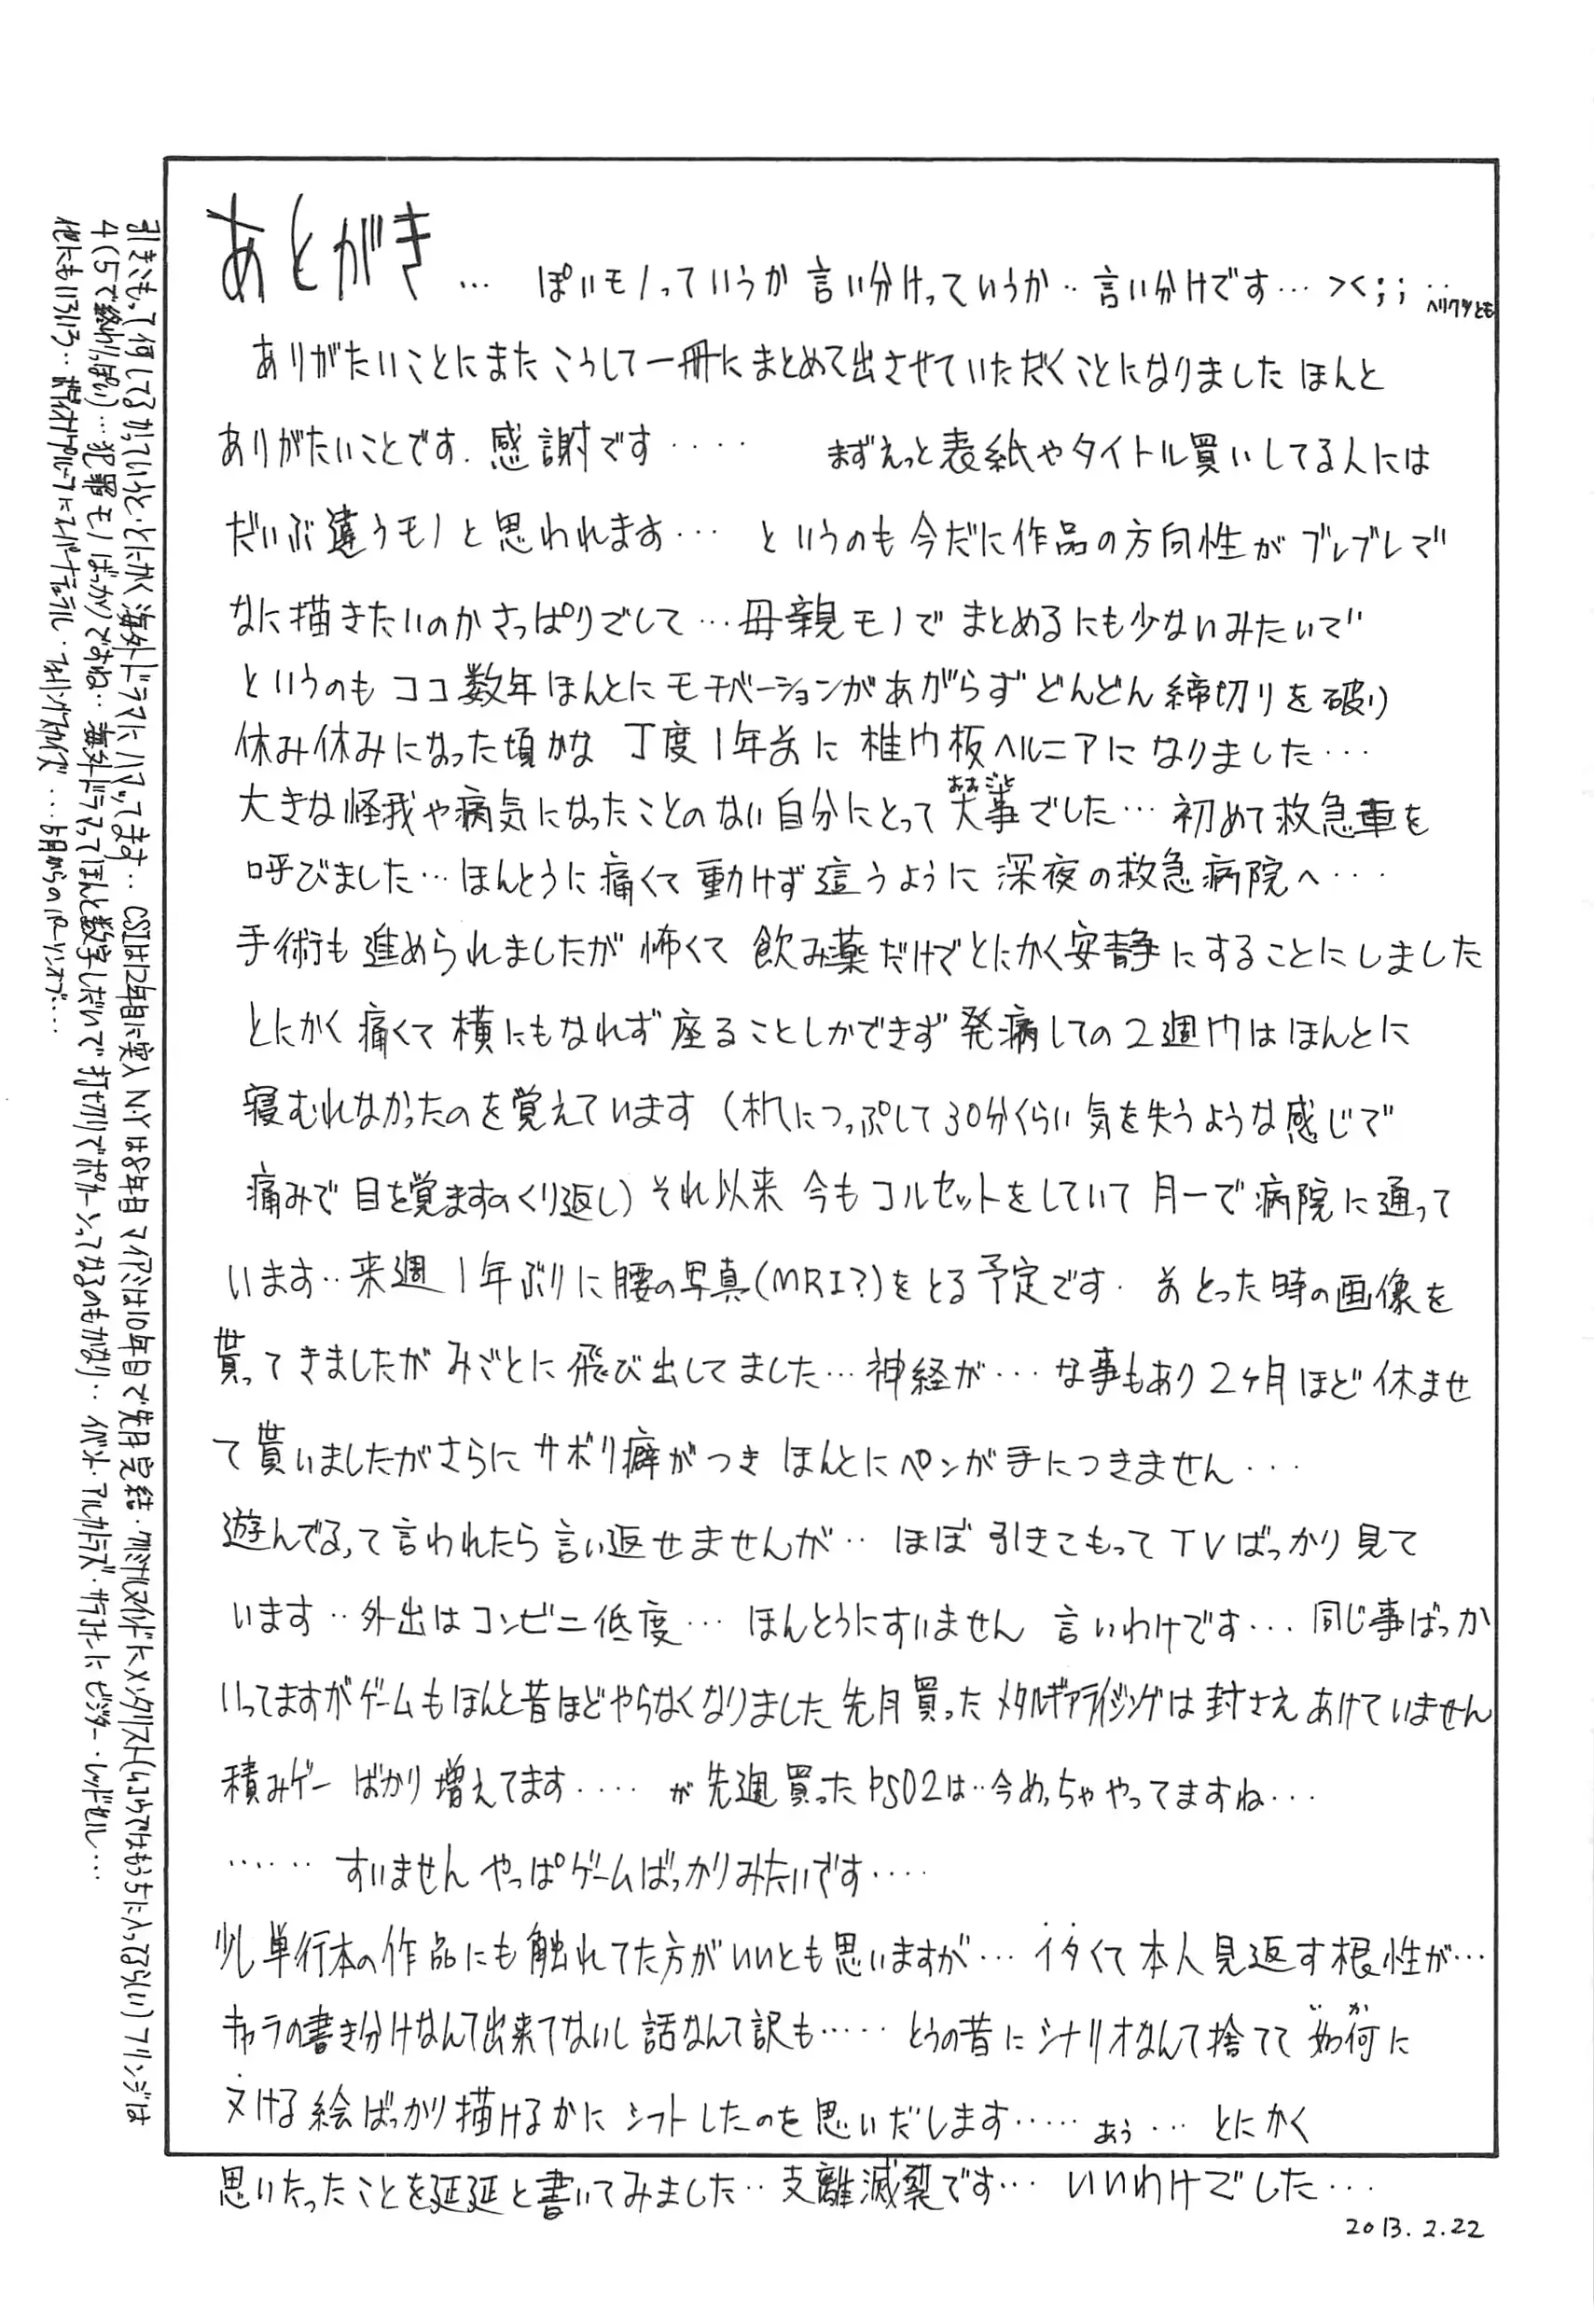 あとがき… ぽいモノっていうか 言い分けっていうか‥ 言い分けです… ><;; ‥ヘリクツとも
ありがたいことにまた こうして一冊に まとめて出させていただくことになりました ほんと
ありがたいことです. 感謝です‥‥ まずえっと表紙やタイトル買いしてる人には
だいぶ違うモノと思われます… というのも今だに作品の方向性が ブレブレで
なに描きたいのかさっぱりでして…母親モノで まとめるにも少ないみたいで
というのも ココ数年ほんとに モチベーションがあがらず どんどん締切りを破り
休み休みになった頃かな 丁度1年前に 椎間板ヘルニアに なりました…
大きな怪我や病気になったことのない自分にとって 大事(おおごと)でした… 初めて救急車を
呼びました… ほんとうに痛くて 動けず這うように 深夜の救急病院へ…
手術も進められましたが 怖くて 飲み薬だけでとにかく安静にすることにしました
とにかく痛くて 横にもなれず 座ることしかできず 発病しての2週間はほんとに
寝むれなかったのを覚えています (机につっぷして30分くらい気を失うような感じで
痛みで目を覚ますのくり返し) それ以来 今もコルセットをしていて 月一で病院に通って
います‥来週 1年ぶりに腰の写真(MRI?)をとる予定です. 前とった時の画像を
貰ってきましたが みごとに飛び出してました…神経が…な事もあり 2ヶ月ほど休ませ
て貰いましたがさらに サボリ癖がつき ほんとにペンが手につきません…
遊んでるって言われたら言い返せませんが‥ ほぼ引きこもってTVばっかり見て
います‥外出はコンビニ低度… ほんとうにすいません 言いわけです… 同じ事ばっか
いってますがゲームもほんと昔ほどやらなくなりました 先月買ったメタルギアライジングは封さえあけていません
積みゲーばかり増えてます‥‥ が先週買ったPSO2は‥今めっちゃやってますね…
‥‥‥ すいません やっぱゲームばっかりみたいです‥‥
少し単行本の作品にも触れてた方がいいとも思いますが… イタくて本人見返す根性が…
キャラの書き分けなんて出来てないし 話なんて訳も‥‥‥ とうの昔にシナリオなんて捨てて 如何(いか)に
ヌける絵ばっかり描けるかに シフトしたのを思いだします‥‥‥ あぅ… とにかく
思いたったことを延延と書いてみました‥支離滅裂です… いいわけでした…
2013.2.22
引きこもって何してるかっていうと・とにかく海外ドラマにハマってます‥ CSIは12年目に突入 N.Yは8年目 マイアミは10年目で先月完結・クリミナルマインドに メンタリスト(ムコウではもう5に入ってるらしい) フリンジは
4(5で終わりっぽい)…犯罪モノばっかりですね‥海外ドラマってほんと数字しだいで打ち切りでポカーンってなるのもかなり‥ イベント・アルカトラズ・サラコナーに ビジター・レッドセル…
他にもいろいろ‥ボディオブプルーフに スーパーナチュラル・フォーリングスカイズ…5月からのパーソンオブ…